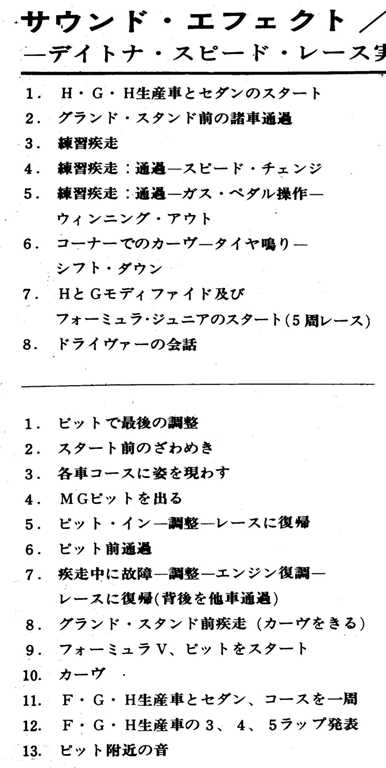 サウンド・エフェクト／
―デイトナ・スピード・レース実
1. H・G・H生産車とセダンのスタート
2. グランド・スタンド前の諸車通過
3. 練習疾走
4. 練習疾走：通過―スピード・チェンジ
5. 練習疾走：通過―ガス・ペダル操作―
ウィンニング・アウト
6. コーナーでのカーヴ―タイヤ鳴り―
シフト・ダウン
7. HとGモディファイド及び
フォーミュラ・ジュニアのスタート(5周レース)
8. ドライヴァーの会話
1. ピットで最後の調整
2. スタート前のざわめき
3. 各車コースに姿を現わす
4. MGピットを出る
5. ピット・イン―調整―レースに復帰
6. ピット前通過
7. 疾走中に故障―調整―エンジン復調―
レースに復帰(背後を他車通過)
8. グランド・スタンド前疾走(カーヴをきる)
9. フォーミュラV、ピットをスタート
10. カーヴ
11. F・G・H生産車とセダン、コースを一周
12. F・G・H生産車の3、4、5ラップ発表
13. ピット附近の音